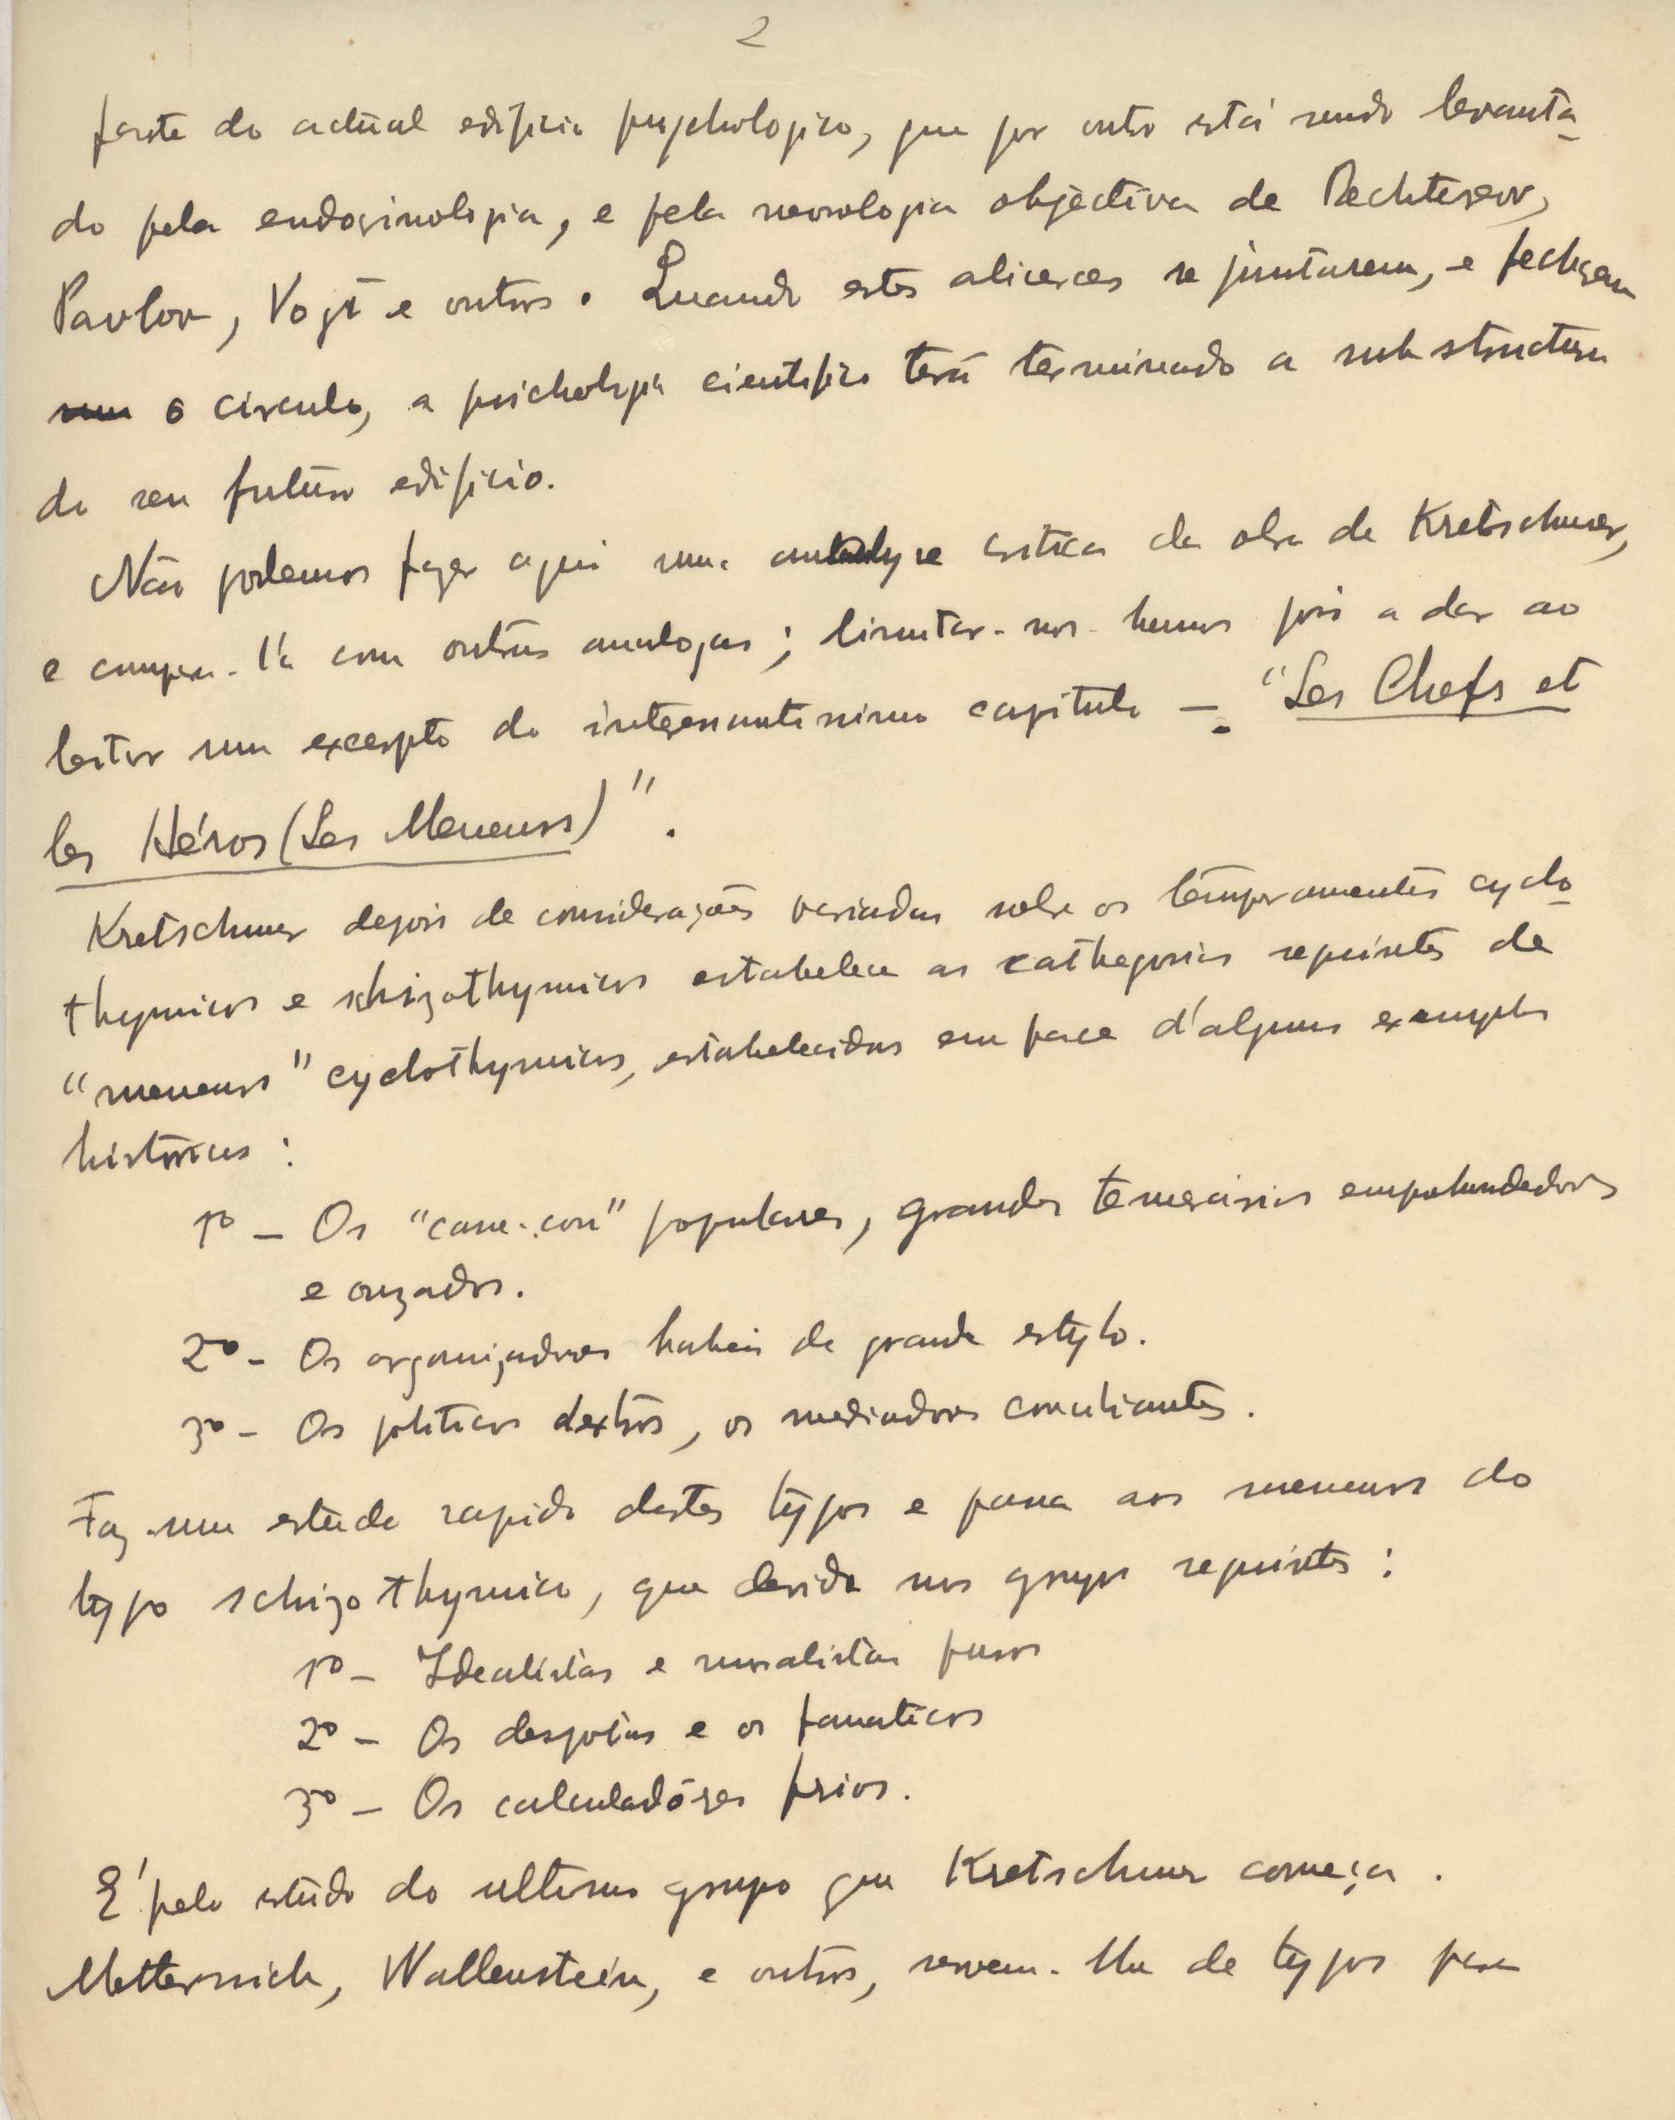 2
parte do actual edificio psychologico, que por outro está sendo levanta-
do pela endocrinologia, e pela nevrologia objectiva de Bechterew,
Pavlov, Vogt e outros. Quando estes alicerces se juntarem, e fecharem
o circulo, a psichologia cientifica terá terminado a substructura
do seu futuro edificio.
Não podemos fazer aqui uma analyse critica da obra de Kretschmer,
e compara-la com outras analogas; limitar-nos-hemos pois a dar ao
leitor um excerpto do interessantissimo capitulo — "Les Chefs et
les Héros (Les Meneurs)".
Kretschmer depois de considerações variadas sobre os temperamentos cyclo-
thymicos e schizothymicos estabelece as cathegorias seguintes de
"meneurs" cyclothymicos, estabelecidas em face d'alguns exemplos
historicos:
1º — Os "casse-cou" populares, grandes temerarios emprehendedores
e ouzados.
2º - Os organizadores habeis de grande estylo.
3º - Os politicos dextros, os mediadores conciliantes.
Faz um estudo rapido destes typos e passa aos meneurs do
typo schizothymico, que devide nos grupos seguintes:
1º — Idealistas e moralistas puros
2º — Os despotas e os fanaticos
3º — Os calculadóres frios.
É pelo estudo do ultimo grupo que Kretschmer começa.
Metternich, Wallenstein, e outros, servem-lhe de typos para